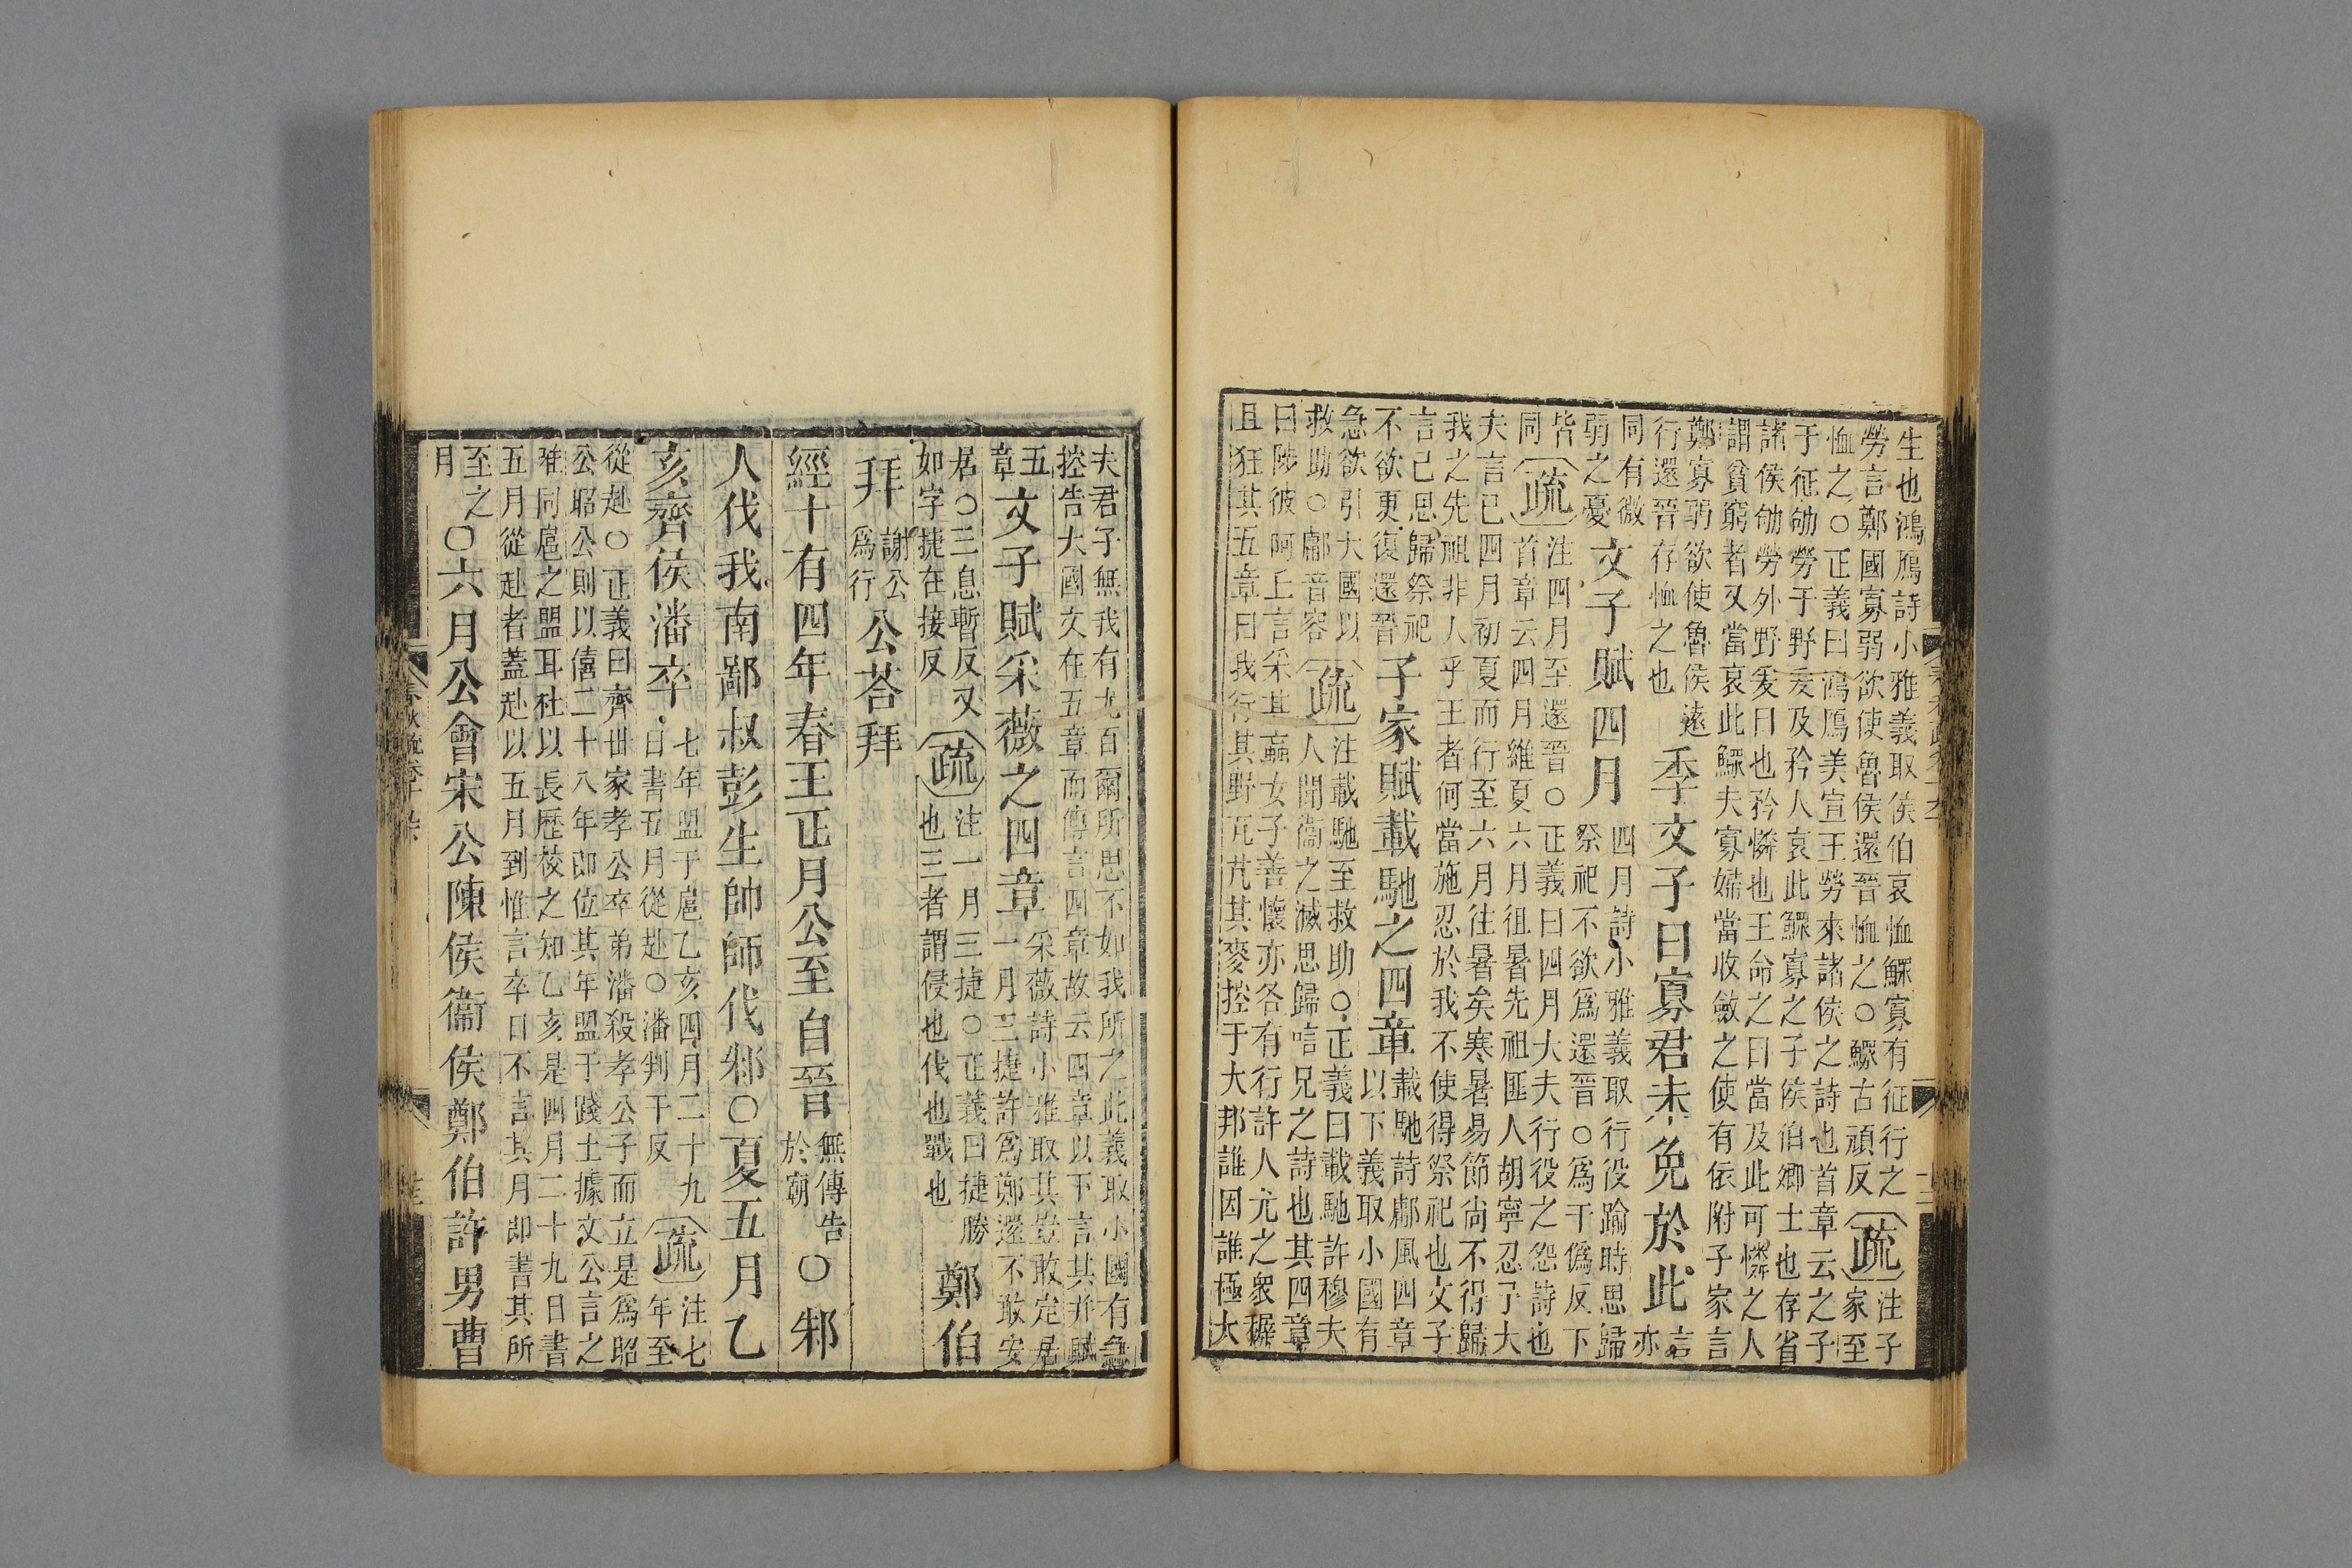 生也鴻鴈詩小雅義取侯伯哀恤鰥寡有征行之
勞言鄭國寡弱欲使魯侯還晉恤之○鰥古頑反
疏
注子
家至
恤之○正義曰鴻鴈美宣王勞來諸侯之詩也首章云之子
于征劬勞于野爰及矜人哀此鰥寡之子侯伯卿士也存省
諸侯劬勞外野爰曰也矜憐也王命之曰當及此可憐之人
謂貧窮者又當哀此鰥夫寡婦當收斂之使有依附子家言
鄭寡弱欲使魯侯遠
行還晉存恤之也
季文子曰寡君未免於此
言
亦
同有微
弱之憂
文子賦四月
四月詩小雅義取行役踰時思歸
祭祀不欲爲還晉○爲于僞反下
皆
同
疏
注四月至還晉○正義曰四月大夫行役之怨詩也
首章云四月維夏六月徂暑先祖匪人胡寧忍予大
夫言已四月初夏而行至六月往暑矣寒暑易節尚不得歸
我之先祖非人乎王者何當施忍於我不使得祭祀也文子
言己思歸祭祀
不欲更復還晉
子家賦載馳之四章
載馳詩鄘風四章
以下義取小國有
急欲引大國以
救助○鄘音容
疏
注載馳至救助○正義曰載馳許穆夫
人閔衞之滅思歸唁兄之詩也其四章
曰陟彼阿丘言采其蝱女子善懷亦各有行許人尤之衆穉
且狂其五章曰我行其野芃芃其麥控于大邦誰因誰極大
夫君子無我有尤百爾所思不如我所之此義取小國有急
控告大國文在五章而傳言四章故云四章以下言其并賦
五
章
文子賦采薇之四章
采薇詩小雅取其豈敢定居
一月三捷許爲鄭還不敢安
居○三息暫反又
如字捷在接反
疏
注一月三捷○正義曰捷勝
也三者謂侵也伐也戰也
鄭伯
拜
謝公
爲行
公荅拜
經十有四年春王正月公至自晉
無傳告
於廟
○邾
人伐我南鄙叔彭生帥師伐邾○夏五月乙
亥齊侯潘卒
七年盟于扈乙亥四月二十九
日書五月從赴○潘判干反
疏
注七
年至
從赴○正義曰齊世家孝公卒弟潘殺孝公子而立是爲昭
公昭公則以僖二十八年即位其年盟于踐土據文公言之
唯同扈之盟耳杜以長歷校之知乙亥是四月二十九日書
五月從赴者蓋赴以五月到惟言卒日不言其月即書其所
至之
月
○六月公會宋公陳侯衞侯鄭伯許男曹